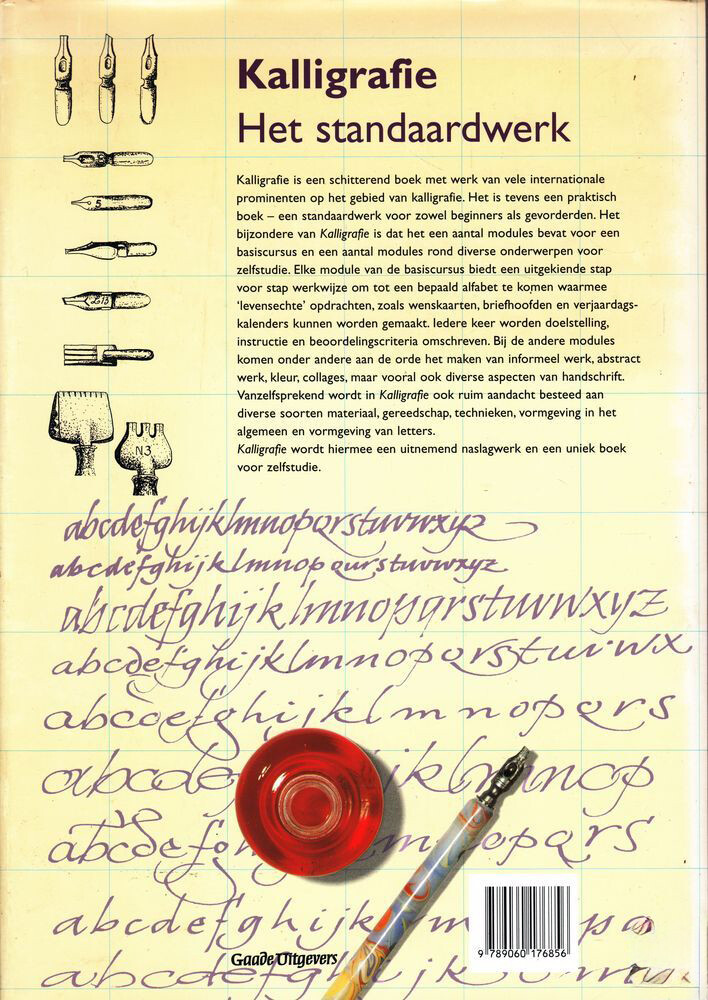 Kalligrafie
Het standaardwerk
Kalligrafie is een schitterend boek met werk van vele internationale
prominenten op het gebied van kalligrafie. Het is tevens een praktisch
boek – een standaardwerk voor zowel beginners als gevorderden. Het
bijzondere van Kalligrafie is dat het een aantal modules bevat voor een
basiscursus en een aantal modules rond diverse onderwerpen voor
zelfstudie. Elke module van de basiscursus biedt een uitgekiende stap
voor stap werkwijze om tot een bepaald alfabet te komen waarmee
'levensechte' opdrachten, zoals wenskaarten, briefhoofden en verjaardags-
kalenders kunnen worden gemaakt. Iedere keer worden doelstelling,
instructie en beoordelingscriteria omschreven. Bij de andere modules
komen onder andere aan de orde het maken van informeel werk, abstract
werk, kleur, collages, maar vooral ook diverse aspecten van handschrift.
Vanzelfsprekend wordt in Kalligrafie ook ruim aandacht besteed aan
diverse soorten materiaal, gereedschap, technieken, vormgeving in het
algemeen en vormgeving van letters.
Kalligrafie wordt hiermee een uitnemend naslagwerk en een uniek boek
voor zelfstudie.
5
N3
abcdefghijklmnopqrstuvwxyz
abcdefghijklmnopqurstuvwxyz
abcdefghijklmnopqrstuvwxyz
abcdefghijklmnopqrstuvwx
abcdefghijklmnopqrs
abcde ijklmnop
abcdefg m opqrs
abcdefghijk m pq
abcdefghijk m
Gaade Uitgevers
9 789060 176856